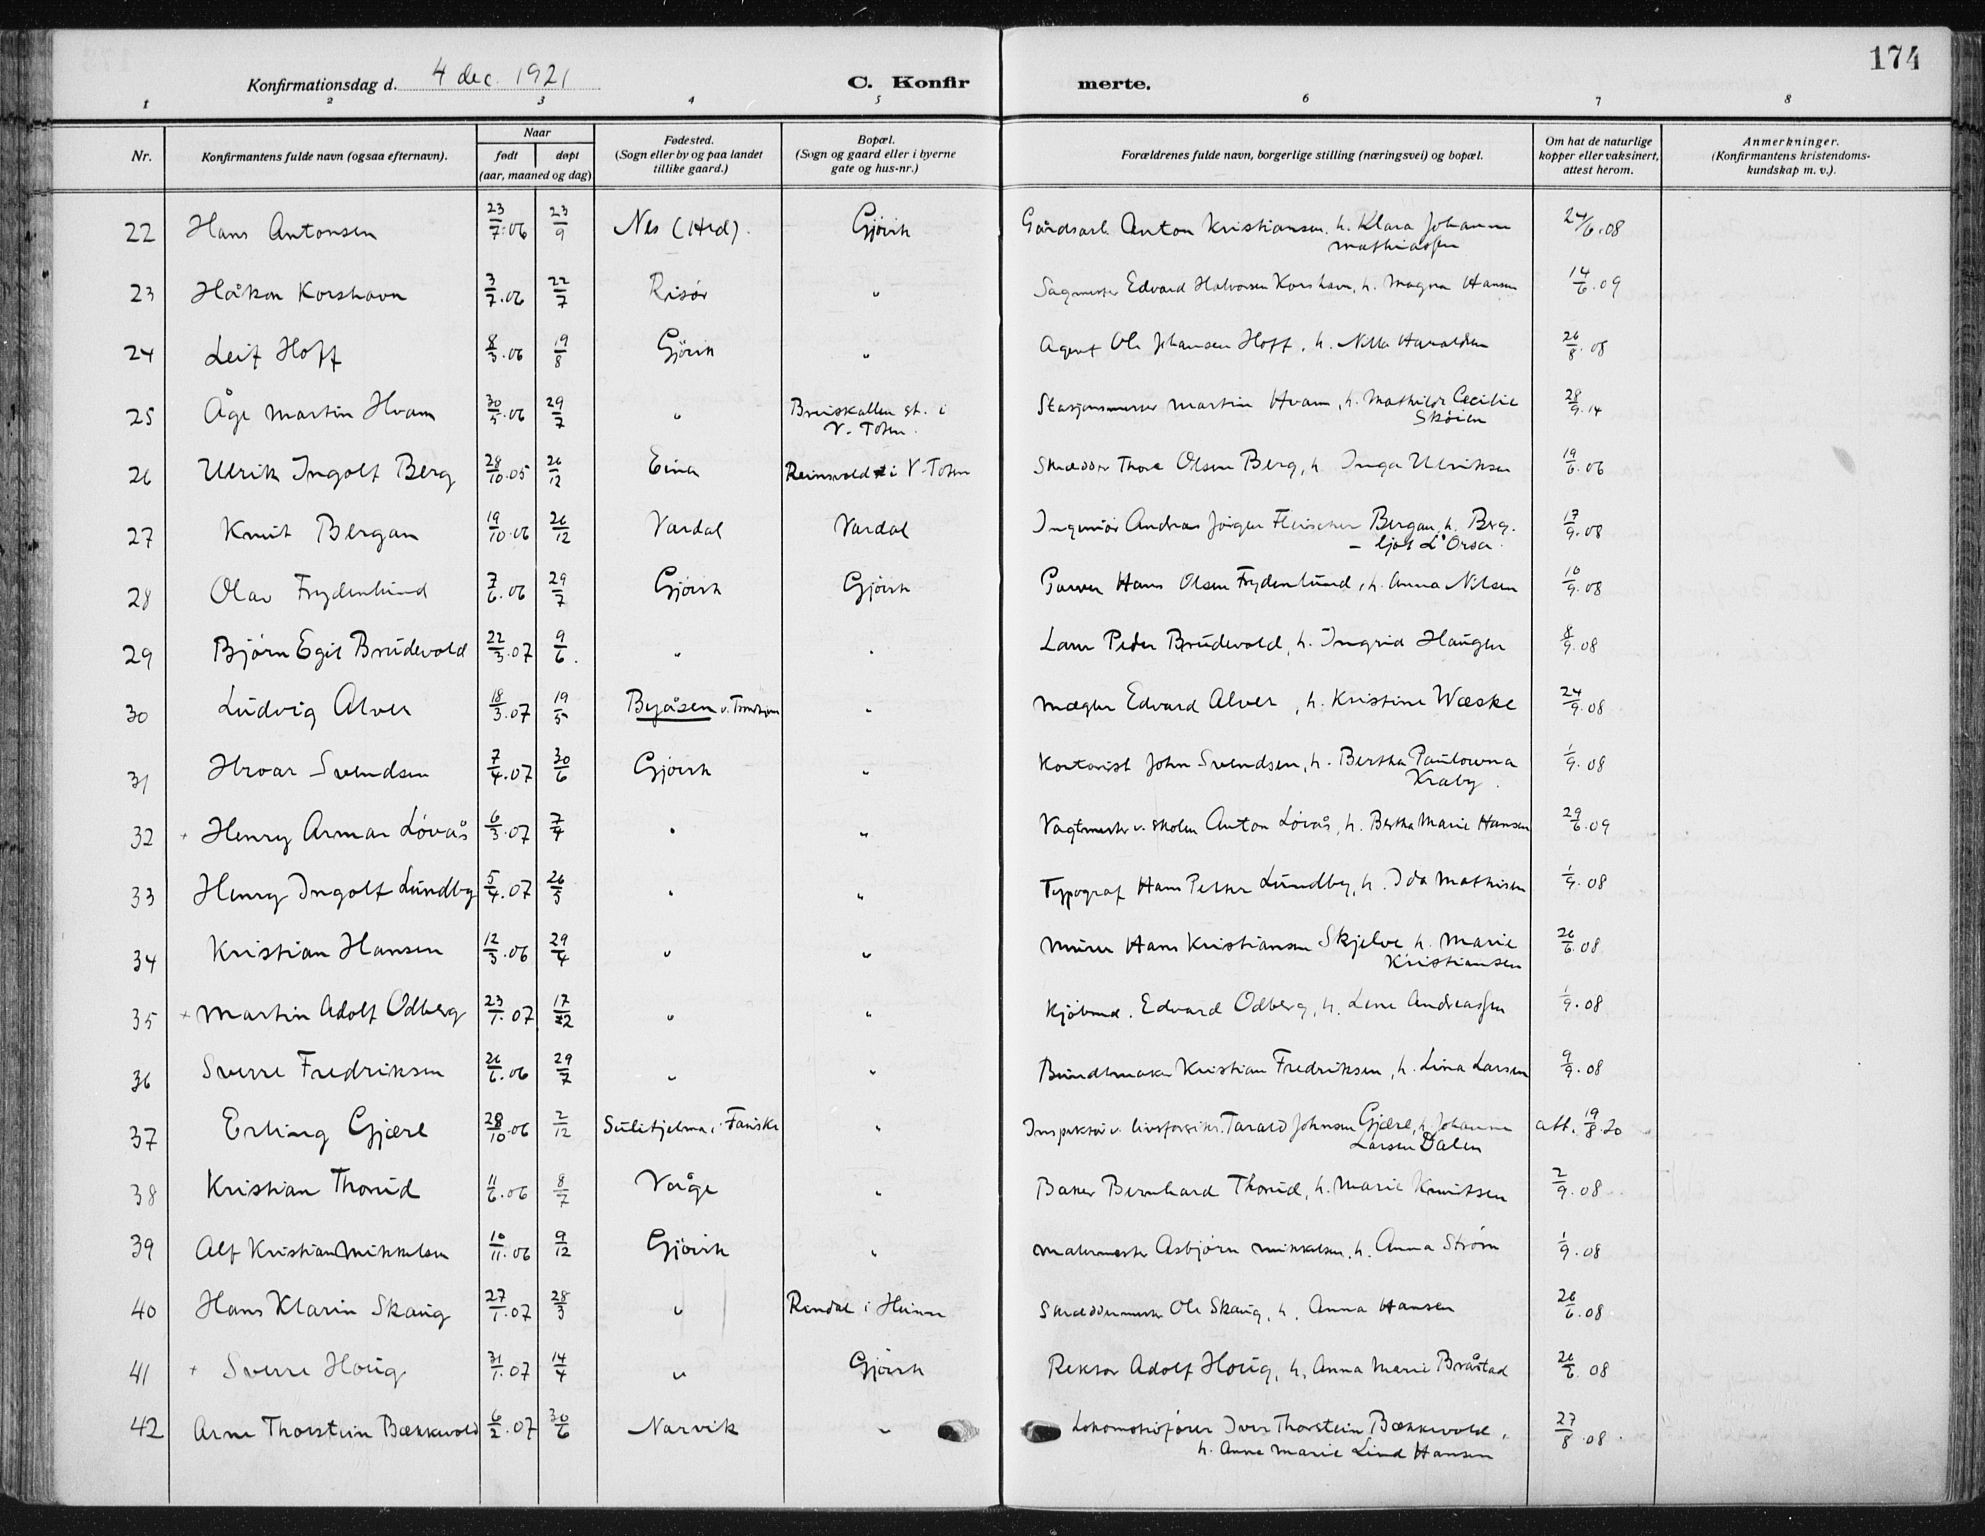 174
Konfirmationsdag d. 4 dec. 1921 C. Konfir merte.
1 2 3 4 5 6 7 8
Nr. Konfirmantens fulde navn (ogsaa efternavn). Naar født døpt (aar, maaned og dag) Fødested. (Sogn eller by og paa landet tillike gaard.) Bopæl. (Sogn og gaard eller i byerne gate og hus-nr.) Forældrenes fulde navn, borgerlige stilling (næringsvei) og bopæl. Om hat de naturlige kopper eller vaksinert, attest herom. Anmerkninger. (Konfirmantens kristendoms- kundskap m. v.).
22 Hans Antonsen 23/7.06 23/9 Nes (Hed). Gjøvik Gårdsarb. Anton Kristiansen, h. Klara Johanne 24/6.08
Mathiassen
23 Håkon Korshavn 3/7.06 22/7 Risør " Sagmester Edvard Halvorsen Korshavn, h. Magna Hansen 14/6.09
24 Leif Hoff 8/3.06 19/8 Gjövik " Agent Ole Johansen Hoff, h. Haraldsen 26/8.08
25 Åge Martin Hvam 30/5.06 29/7 " Breiskallen st. i Stasjonsmester Martin Hvam, h. Mathilde Cecilie 28/9.14
V. Toten. Skøien
26 Ulrik Ingolf Berg 28/10.05 26/12 Eina Reinsvold i V. Toten Skrædder Thore Olsen Berg, h. Inga Ulriksen 19/6.06
27 Knut Bergan 19/10.06 26/12 Vardal Vardal Ingeniör Andreas Jörgen Fleischer Bergan, h. Berg. 17/9.08
– ljot L'Orsa.
28 Olav Frydenlund 7/6.06 29/7 Gjövik Gjövik Garver Hans Olsen Frydenlund, h. Anna Nilsen 10/9.08
29 Bjørn Egil Brudevold 22/3.07 9/6. " " Peder Brudevold, h. Ingrid Haugen 8/9.08
30 Ludvig Alver 18/3.07 19/5 Byåsen v. Trondhjem " Mægler Edvard Alver, h. Kristine Wæske 24/9.08
31 Hroar Svendsen 7/4.07 30/6 Gjövik " Kontorist John Svendsen, h. Bertha Paulowna 1/9.08
Kraby.
32 + Henry Armar Lövås 6/3.07 7/4 " " Vagtmester v. skolen Anton Lövås, h. Bertha Marie Hansen 29/6.09
33 Henry Ingolf Lundby 5/4.07 26/5 " " Typograf Hans Petter Lundby, h. Ida Mathisen 1/9.08
34 Kristian Hansen 12/3.06 29/4 " " Murer Hans Kristiansen Skjelve h. Marie 26/6.08
Kristiansen
35 + Martin Adolf Odberg 23/1.07 17/2 " " Kjöbmd. Edvard Odberg, h. Lene Andreassen 1/9.08
36 Sverre Fredriksen 26/6.06 29/7 " " Bundtmaker Kristian Fredriksen, h. Lina Larsen 9/9.08
37 Erling Gjære 28/10.06 2/12 Sulitjelma i Fauske " Inspektør v. livsforsikr. Tarald Johnsen Gjære, h. Johanne att. 19/8.20
Larsen Dalen
38 Kristian Thorud 11/6.06 8/7 Vågå " Baker Bernhard Thorud, h. Marie Knutsen 2/9.08
39 Alf Kristian Mikkelsen 10/11.06 9/12 Gjövik " Malermester Asbjörn Mikkelsen, h. Anna Ström 1/9.08
40 Hans Klarin Skaug 27/1.07 28/3 " Rendal i Skræddermester Ole Skaug, h. Anna Hansen 26/6.08
41 + Sverre Houg 31/1.07 14/4 " Gjövik Rektor Adolf Houg, h. Anna Marie Bråstad 26/6.08
42 Arne Thorstein Bækkevold 6/2.07 30/6 Narvik " Lokomotivförer Iver Thorstein Bækkevold, 27/8.08.
h. Anne Marie Lind Hansen